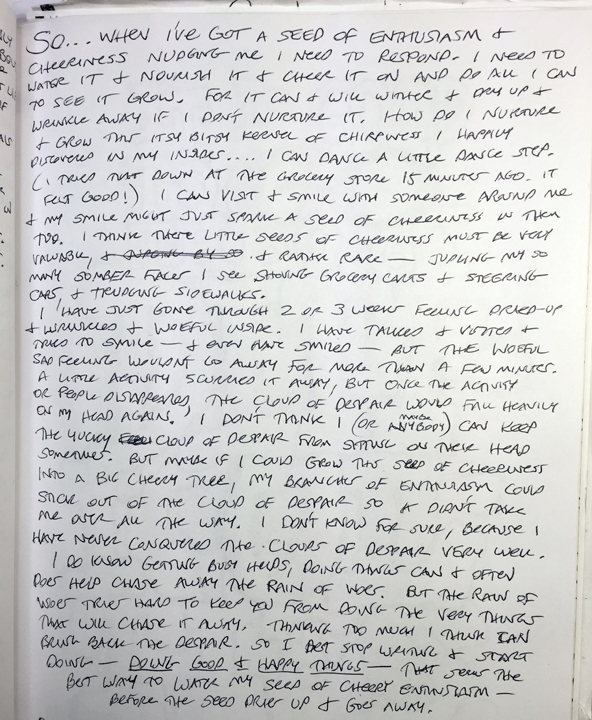 SO... WHEN I'VE GOT A SEED OF ENTHUSIASM &
CHEERINESS NUDGING ME I NEED TO RESPOND. I NEED TO
WATER IT & NOURISH IT & CHEER IT ON AND DO ALL I CAN
TO SEE IT GROW. FOR IT CAN & WILL WITHER & DRY UP &
WRINKLE AWAY IF I DON'T NURTURE IT. HOW DO I NURTURE
& GROW THIS ITSY BITSY KERNEL OF CHIRPINESS I HAPPILY
DISCOVERED IN MY INSIDES.... I CAN DANCE A LITTLE DANCE STEP.
(I TRIED THAT DOWN AT THE GROCERY STORE 15 MINUTES AGO. IT
FELT GOOD!) I CAN VISIT & SMILE WITH SOMEONE AROUND ME
& MY SMILE MIGHT JUST SPARK A SEED OF CHEERINESS IN THEM
TOO. I THINK THESE LITTLE SEEDS OF CHEERINESS MUST BE VERY
VALUABLE, & JUDGING BY SO & RATHER RARE — JUDGING MY SO
MANY SOMBER FACES I SEE SHOVING GROCERY CARTS & STEERING
CARS, & TRUDGING SIDEWALKS.
I HAVE JUST GONE THROUGH 2 OR 3 WEEKS FEELING DRIED-UP
& WRINKLED & WOEFUL INSIDE. I HAVE TALKED & VISITED &
TRIED TO SMILE — & EVEN HAVE SMILED — BUT THE WOEFUL
SAD FEELING WOULDN'T GO AWAY FOR MORE THAN A FEW MINUTES.
A LITTLE ACTIVITY SCURRIED IT AWAY, BUT ONCE THE ACTIVITY
OR PEOPLE DISAPPEARED, THE CLOUD OF DESPAIR WOULD FALL HEAVILY
ON MY HEAD AGAIN. I DON'T THINK I (OR MAYBE ANYBODY) CAN KEEP
THE YUCKY CLOUD OF DESPAIR FROM SITTING ON THEIR HEAD
SOMETIMES. BUT MAYBE IF I COULD GROW THIS SEED OF CHEERINESS
INTO A BIG CHEERY TREE, MY BRANCHES OF ENTHUSIASM COULD
STICK OUT OF THE CLOUD OF DESPAIR SO IT DIDN'T TAKE
ME OVER ALL THE WAY. I DON'T KNOW FOR SURE, BECAUSE I
HAVE NEVER CONQUERED THE CLOUDS OF DESPAIR VERY WELL.
I DO KNOW GETTING BUSY HELPS, DOING THINGS CAN & OFTEN
DOES HELP CHASE AWAY THE RAIN OF WOES. BUT THE RAIN OF
WOES TRIES HARD TO KEEP YOU FROM DOING THE VERY THINGS
THAT WILL CHASE IT AWAY. THINKING TOO MUCH I THINK CAN
BRING BACK THE DESPAIR. SO I BEST STOP WRITING & START
DOING — DOING GOOD & HAPPY THINGS — THAT SEEMS THE
BEST WAY TO WATER MY SEED OF CHEERY ENTHUSIASM —
BEFORE THE SEED DRIES UP & GOES AWAY.